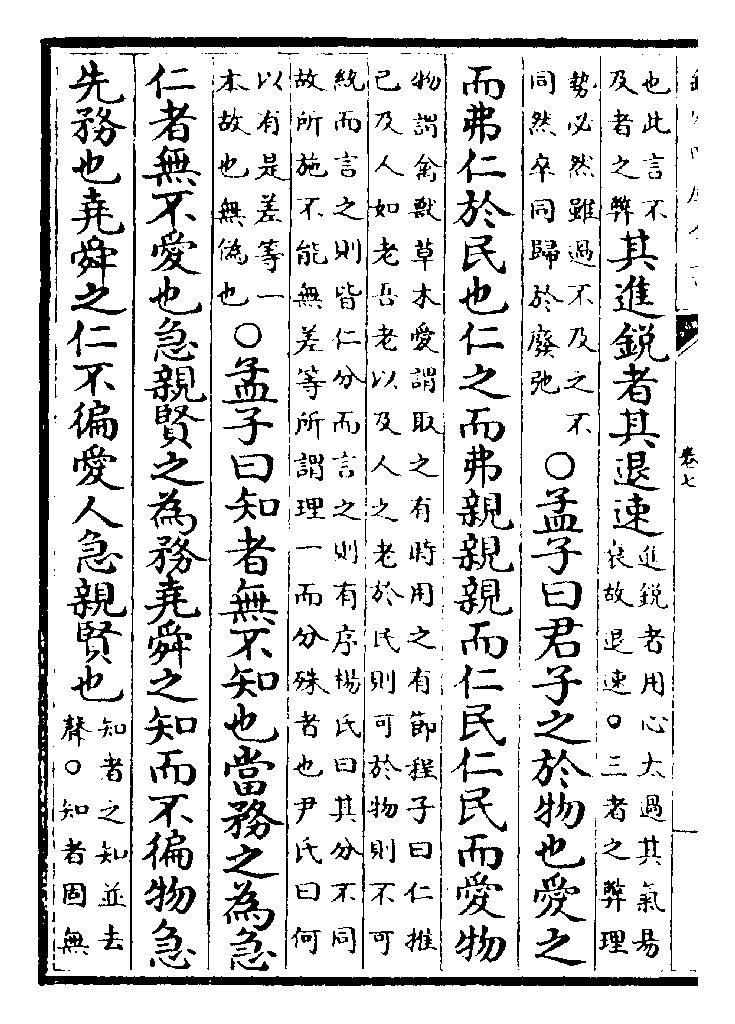 卷七
也此言不
及者之弊
其進鋭者其退速
進鋭者用心太過其氣易
衰故退速○三者之弊理
勢必然雖過不及之不
同然卒同歸於廢弛
○孟子曰君子之於物也愛之
而弗仁於民也仁之而弗親親親而仁民仁民而愛物
物謂禽獸草木愛謂取之有時用之有節程子曰仁推
已及人如老吾老以及人之老於民則可於物則不可
統而言之則皆仁分而言之則有序楊氏曰其分不同
故所施不能無差等所謂理一而分殊者也尹氏曰何
以有是差等一
本故也無偽也
○孟子曰知者無不知也當務之為急
仁者無不愛也急親賢之為務堯舜之知而不徧物急
先務也堯舜之仁不徧愛人急親賢也
知者之知並去
聲○知者固無